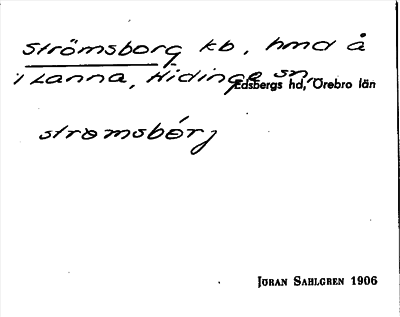 Strömsborg kb, hmd å
i Lanna, Hidinge sn,
Edsbergs hd, Örebro län
strømsbórj
JÖRAN SAHLGREN 1906